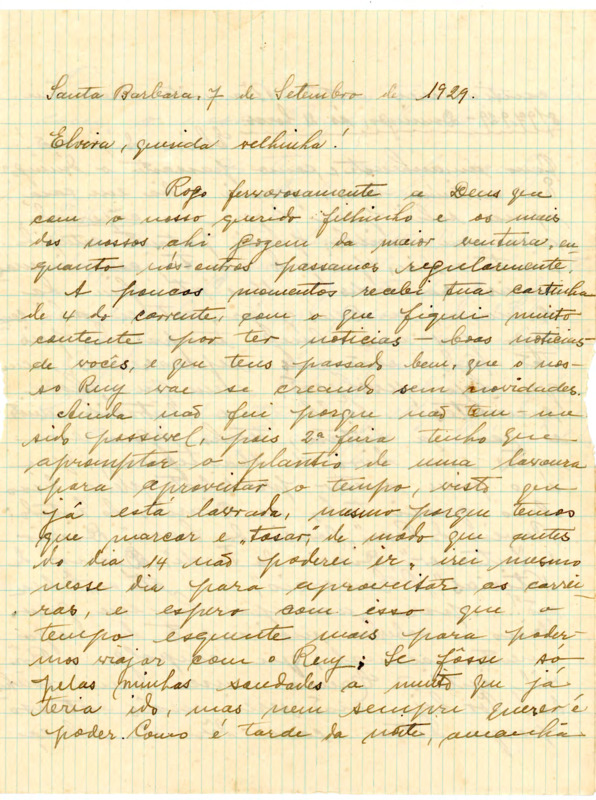 Santa Barbara, 7 de Setembro de 1929.
Elvira, querida velhinha!
Rogo fervorosamente a Deus que
com o nosso querido filhinho e os mais
dos nossos ahi gozem da maior ventura, en-
quanto nós-outros passamos regularmente.
A poucos momentos recebi tua cartinha
de 4 do corrente, com o que fiquei muito
contente por ter noticias – boas noticias
de vocês, e que tens passado bem, que o nos-
so Ruy vae se creando sem novidades.
Ainda não fui porque não tem-me
sido possivel, pois 2ª feira tenho que
apromptar o plantio de uma lavoura
para aproveitar o tempo, visto que
já esta lavrada, mesmo porque temos
que marcar e "tosar", de modo que antes
do dia 14 não poderei ir, irei mesmo
nesse dia para aproveitar as carrei-
ras, e espero com isso que o
tempo esquente mais para poder-
mos viajar com o Ruy; Se fôsse só
pelas minhas saudades a muito que já
teria ido, mas nem sempre querer é
poder. Como é tarde da noite, amanhã